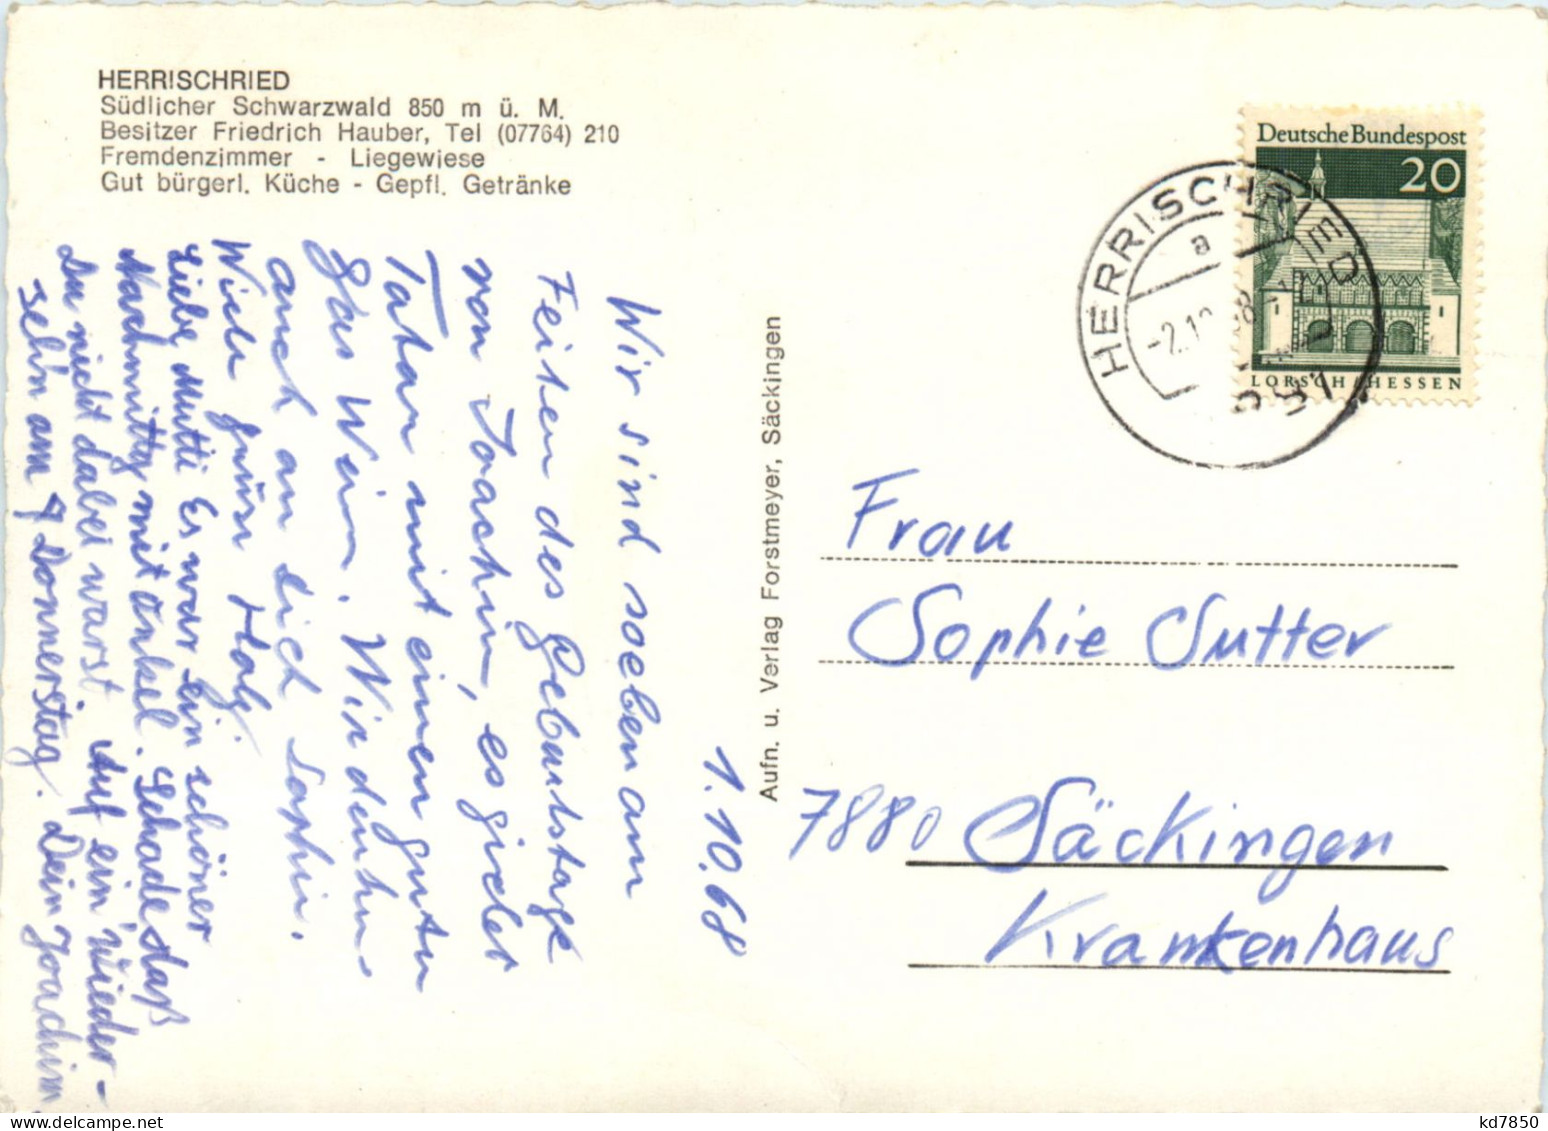 HERRISCHRIED
Südlicher Schwarzwald 850 m ü. M.
Besitzer Friedrich Hauber, Tel (07764) 210
Fremdenzimmer - Liegewiese
Gut bürgerl. Küche - Gepfl. Getränke
1.10.68
Wir sind soeben am
Feiern des Geburtstage
von Joachim, es gieder
Tatar mit einem guten
Glas Wein. Wir denken
auch an Dich Sophie.
Viele Grüße
Liebe Mutti Es war ein schöner
Nachmittag mit onkel. Schade daß
Du nicht dabei warst. Auf ein Wieder-
sehn am Donnerstag. Dein Joachim
Aufn. u. Verlag Forstmeyer, Säckingen
Deutsche Bundespost
20
LORSCH/HESSEN
HERRISCHRIED
a
-2.10
Frau
Sophie Sutter
7880 Säckingen
Krankenhaus
kd7850